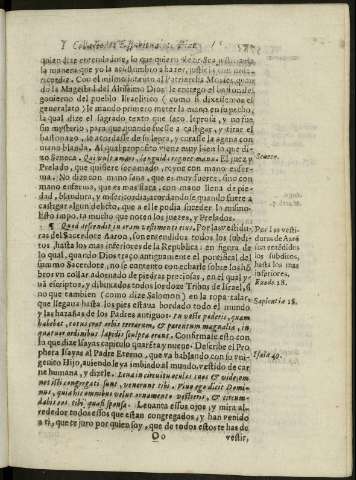 quien dize enmendante, lo que quiero
la manera que yo la acostumbro a hazer, justicia con mise
ricordia. Con el mismo intento al Patriarcha Moises, quan
do la Magestad del Altissimo Dios le entrego el baston del
gouierno del pueblo Israelitico (como si dixessemos el
generalato) le mandò primero meter la mano en su pecho,
la qual dize el sagrado texto que saco leprosa, y no fue
sin mysterio, para que quando fuesse a castigar, y tirar el
bastonazo, se acordasse de su lepra, y curasse la agena con
mano blanda. Al qual proposito viene muy bien lo que di-
xo Seneca. Qui vult amari, languida regnet manu. El juez y
Seneca.
Prelado, que quisiere ser amado, reyne con mano enfer-
ma. No dize con mano sana, que es muy fuerte, sino con
mano enferma, que es mas flaca, con mano llena de pie-
dad, blandura, y misericordia, acordandose quando fuere a
castigar algun delicto, que a el le podia suceder lo mismo.
Iusto impo.ta mucho que noten los juezes, y Prelados.
¶ Quod descendit in oram vestimenti eius. Por las vestidu-
ras del Sacerdote Aaron, son entendidos todos los subdi-
tos, hasta los mas inferiores de la Republica: en figura de
lo qual, quando Dios traço antiguamente el pontifical del
summo Sacerdote, no se contentò con echarle sobre los hõ-
bros vn collar adornado de piedras preciosas, en el qual y-
uã escriptos, y dibuxados todos los doze Tribus de Israel, si
no que tambien (como dize Salomon) en la ropa talar,
que llegaua hasta los pies estaua bordado todo el mundo
y las hazañas de los Padres antiguos. In veste poderis, quam
habebat, totus erat orbis terrarum, & parentum magnalia, in
quatuor ordinibus lapidis sculpta erant. Confirmase esto con
lo que dize Isayas capitulo quarẽta y nueue. Descriue el Pro
pheta Isayas al Padre Eterno, que va hablando con su vni-
genito Hijo, auiendole ya imbiado al mundo, vestido de car
ne humana, y dizele. Leua in circuitu oculos tuos & vide, om
nes isti congregati sunt, venerunt tibi. Viuo ego dicit Domi-
nus, quia his omnibus velut ornamento vestieris, & circum-
dabis eos tibi quasi sponsa. Leuanta essos ojos, y mira al-
rededor todos essos que estan congregados, y han venido
a ti, que te juro por quien soy, que de todos estos te has de
Por las vesti-
duras de Aarõ
son entẽdidos
los subditos,
hasta los mas
inferiores.
Exodo 28.
Sapientiæ 18.
Isaia 49.
Oo
vestir,